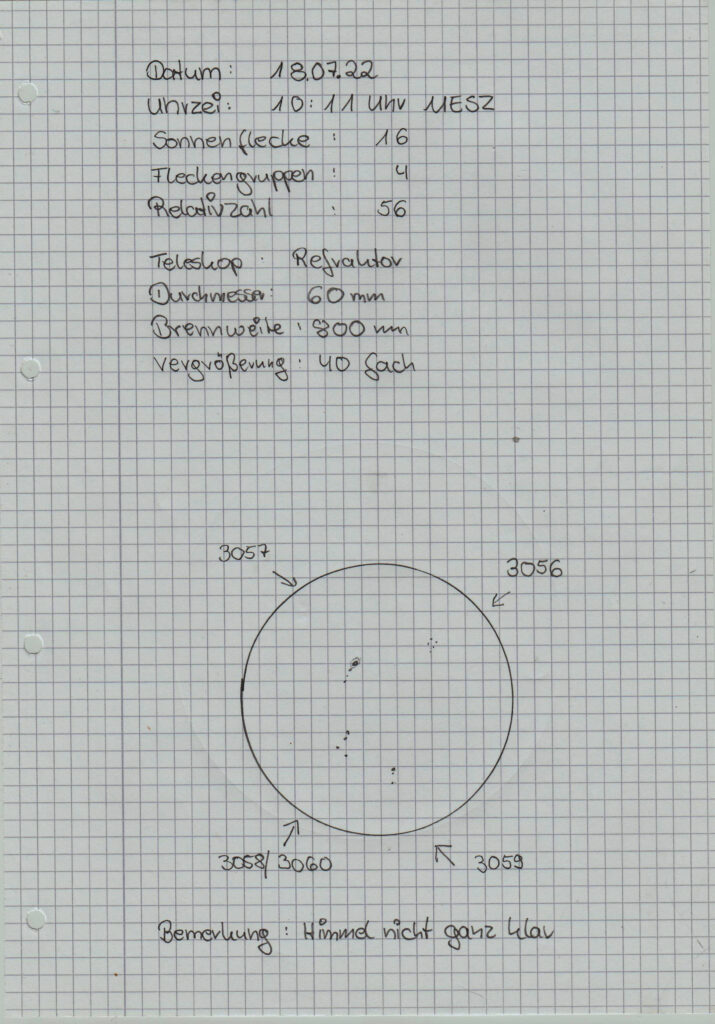 Datum: 18.07.22
Uhrzei: 10:11 Uhr MESZ
Sonnenflecke : 16
Fleckengruppen : 4
Relativzahl : 56
Teleskop : Refraktor
Durchmesser: 60 mm
Brennweite : 800 mm
Vergrößerung : 40 fach
3057
3056
3058/3060
3059
Bemerkung : Himmel nicht ganz klar